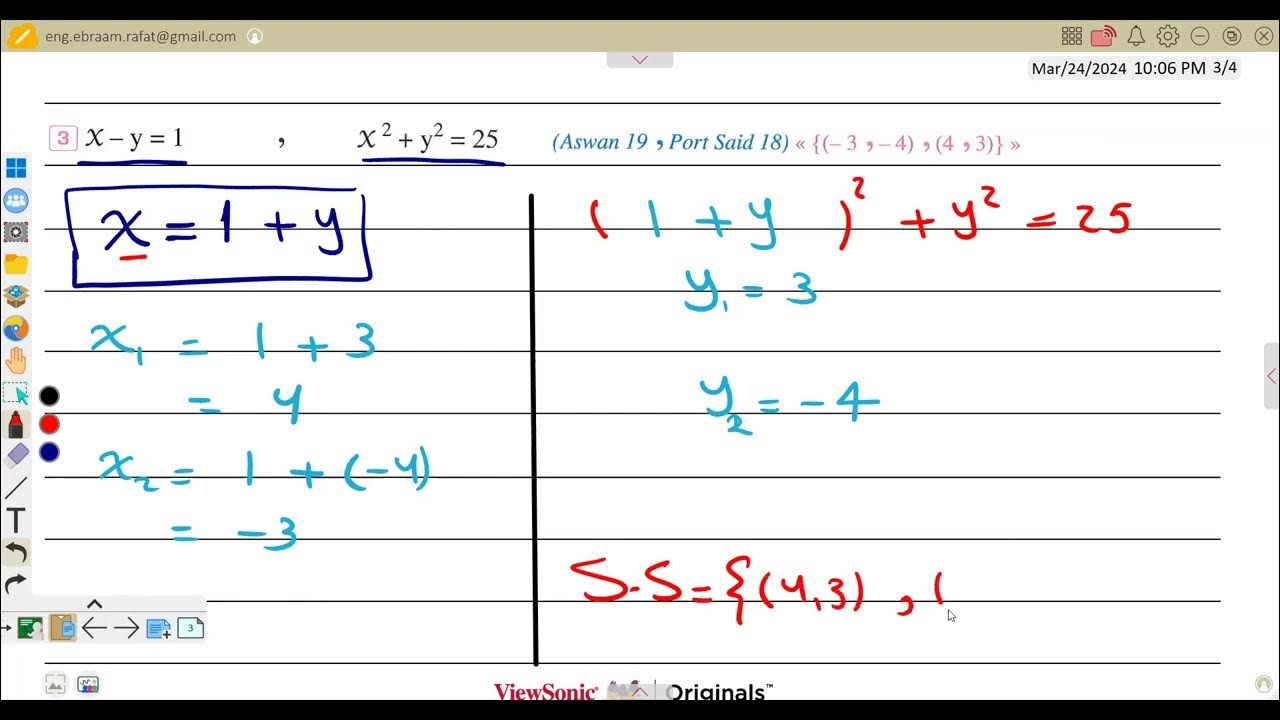 eng.ebraam.rafat@gmail.com
Mar/24/2024 10:06 PM 3/4
3 x – y = 1 , x² + y² = 25 (Aswan 19 , Port Said 18) « {(– 3 , – 4) , (4 , 3)} »
x = 1 + y
x₁ = 1 + 3
= 4
x₂ = 1 + (-4)
= -3
( 1 + y )² + y² = 25
y₁ = 3
y₂ = -4
S.S = {(4,3) , (
T
3
ViewSonic® Originals™